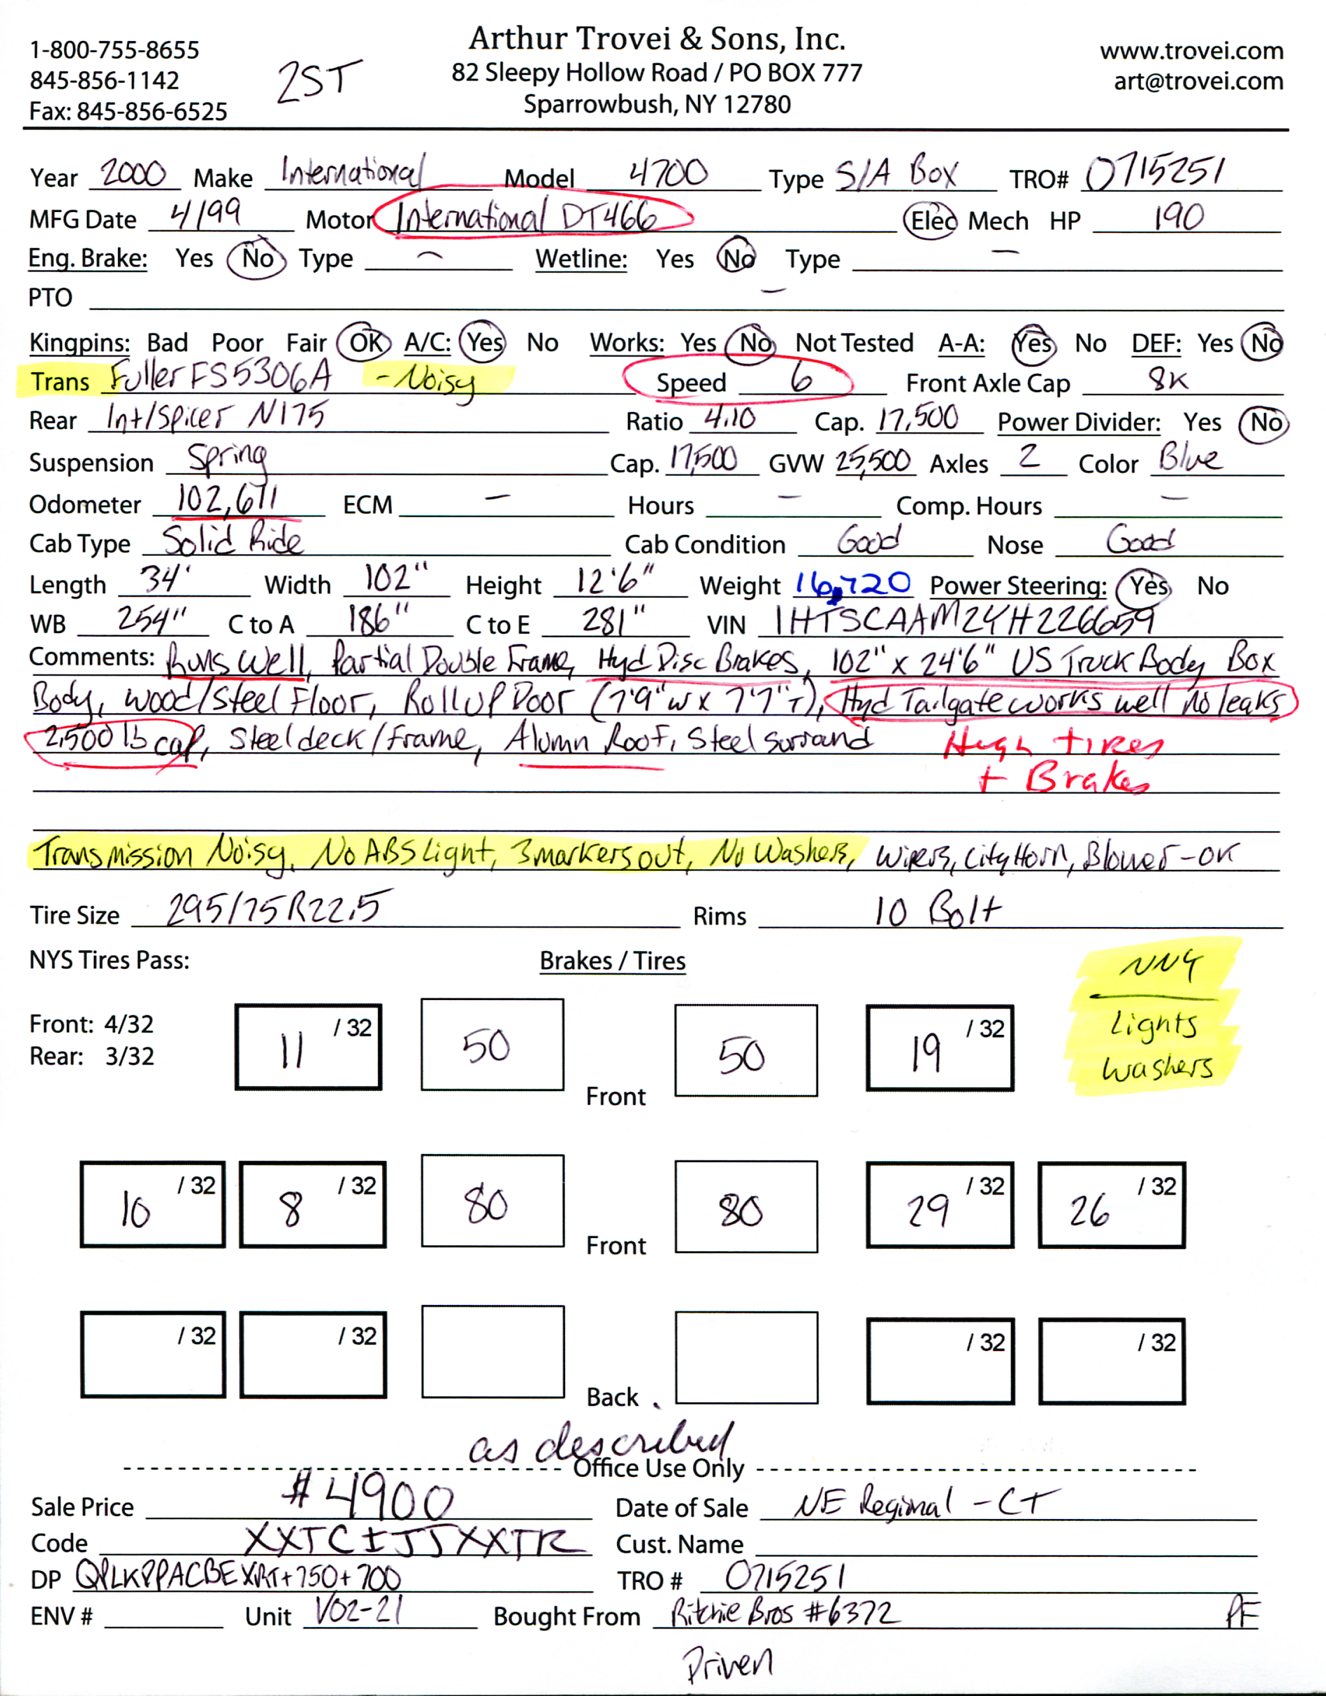 1-800-755-8655
845-856-1142
Fax: 845-856-6525
2ST
Arthur Trovei & Sons, Inc.
82 Sleepy Hollow Road / PO BOX 777
Sparrowbush, NY 12780
www.trovei.com
art@trovei.com
Year 2000 Make International Model 4700 Type S/A Box TRO# 0715251
MFG Date 4/99 Motor International DT466 Elec Mech HP 190
Eng. Brake: Yes No Type — Wetline: Yes No Type —
PTO —
Kingpins: Bad Poor Fair OK A/C: Yes No Works: Yes No Not Tested A-A: Yes No DEF: Yes No
Trans Fuller FS5306A - Noisy Speed 6 Front Axle Cap 8K
Rear Int/Spicer N175 Ratio 4.10 Cap. 17,500 Power Divider: Yes No
Suspension Spring Cap. 17,500 GVW 25,500 Axles 2 Color Blue
Odometer 102,671 ECM — Hours — Comp. Hours —
Cab Type Solid Ride Cab Condition Good Nose Good
Length 34' Width 102" Height 12'6" Weight 16,720 Power Steering: Yes No
WB 254" C to A 186" C to E 281" VIN 1HTSCAAM2YH226659
Comments: Runs Well, Partial Double Frame, Hyd Disc Brakes, 102" x 24'6" US Truck Body Box
Body, Wood/Steel Floor, Roll Up Door (7'9"w x 7'7"T), Hyd Tailgate works well no leaks
2,500 lb cap, Steel deck/frame, Alumn Roof, Steel surround High tires
+ Brakes
Transmission Noisy, No ABS Light, 3 markers out, No Washers, Wipers, City Horn, Blower-OK
Tire Size 295/75R22.5 Rims 10 Bolt
NYS Tires Pass: Brakes / Tires
NNY
Lights
Washers
Front: 4/32
Rear: 3/32
11 /32 50 Front 50 19 /32
10 /32 8 /32 80 Front 80 29 /32 26 /32
/32 /32 Back /32 /32
as described
Office Use Only
Sale Price #4900 Date of Sale NE Regional - CT
Code XXTCIJJXXTR Cust. Name
DP QPLKPPACBEXRT+750+700 TRO # 0715251
ENV # Unit V02-21 Bought From Ritchie Bros #6372 PF
Driven